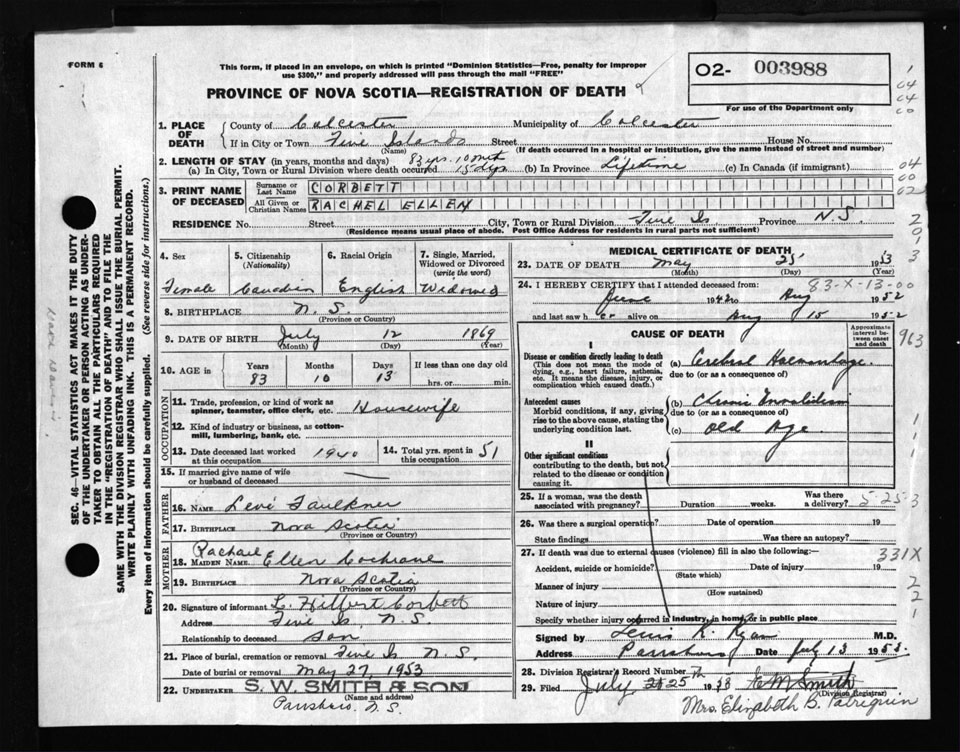 FORM 6
This form, if placed in an envelope, on which is printed "Dominion Statistics—Free, penalty for improper
use $300," and properly addressed will pass through the mail "FREE"
O2- 003988
For use of the Department only
PROVINCE OF NOVA SCOTIA—REGISTRATION OF DEATH
1. PLACE OF DEATH County of Colcester Municipality of Colcester
If in City or Town Five Islands Street House No.
(Name) (If death occurred in a hospital or institution, give the name instead of street and number)
2. LENGTH OF STAY (in years, months and days) 83 yrs. 10 mth
(a) In City, Town or Rural Division where death occurred 13 dys (b) In Province Lifetime (c) In Canada (if immigrant)
3. PRINT NAME OF DECEASED Surname or Last Name CORBETT
All Given or Christian Names RACHEL ELLEN
RESIDENCE No. Street City, Town or Rural Division Five Is Province N.S.
(Residence means usual place of abode. Post Office Address for residents in rural parts not sufficient)
4. Sex Female
5. Citizenship (Nationality) Canadian
6. Racial Origin English
7. Single, Married, Widowed or Divorced (write the word) Widowed
8. BIRTHPLACE N.S.
(Province or Country)
9. DATE OF BIRTH July 12 1869
(Month) (Day) (Year)
10. AGE in Years 83 Months 10 Days 13 If less than one day old
hrs. or min.
OCCUPATION
11. Trade, profession, or kind of work as spinner, teamster, office clerk, etc. Housewife
12. Kind of industry or business, as cotton-mill, lumbering, bank, etc.
13. Date deceased last worked at this occupation 1940
14. Total yrs. spent in this occupation 51
15. If married give name of wife or husband of deceased
FATHER
16. NAME Levi Faulkner
17. BIRTHPLACE Nova Scotia
(Province or Country)
MOTHER
18. MAIDEN NAME Rachael Ellen Cochrane
19. BIRTHPLACE Nova Scotia
(Province or Country)
20. Signature of informant L. Hilbert Corbett
Address Five Is. N.S.
Relationship to deceased Son
21. Place of burial, cremation or removal Five Is N.S.
Date of burial or removal May 27, 1953
22. UNDERTAKER S. W. SMITH & SON
(Name and address)
Parrsboro, N.S.
MEDICAL CERTIFICATE OF DEATH
23. DATE OF DEATH May 25 1953
(Month) (Day) (Year)
24. I HEREBY CERTIFY that I attended deceased from: 83-X-13-00
June 1942 to Aug 1952
and last saw her alive on Aug 15 1952
CAUSE OF DEATH
Approximate interval between onset and death
I
Disease or condition directly leading to death
(This does not mean the mode of dying, e.g., heart failure, asthenia, etc. It means the disease, injury, or complication which caused death.)
(a) Cerebral Haemorrhage.
due to (or as a consequence of)
Antecedent causes
Morbid conditions, if any, giving rise to the above cause, stating the underlying condition last.
(b) Chronic Invalidism
due to (or as a consequence of)
(c) Old Age.
II
Other significant conditions
contributing to the death, but not related to the disease or condition causing it.
963
25. If a woman, was the death associated with pregnancy? Duration weeks. Was there a delivery? 5-25-3
26. Was there a surgical operation? Date of operation 19
State findings Was there an autopsy?
27. If death was due to external causes (violence) fill in also the following:— 331X
Accident, suicide or homicide? Date of injury 19
(State which)
Manner of injury
(How sustained)
Nature of injury
Specify whether injury occurred in industry, in home, or in public place
Signed by Lewis R. Ryan M.D.
Address Parrsboro Date July 13 1953.
28. Division Registrar's Record Number
29. Filed July 25th 1953 E M Smith
(Division Registrar)
Mrs. Elizabeth B. Patriquin
SEC. 46—VITAL STATISTICS ACT MAKES IT THE DUTY
OF THE UNDERTAKER OR PERSON ACTING AS UNDER-
TAKER TO OBTAIN ALL THE PARTICULARS REQUIRED
IN THE "REGISTRATION OF DEATH" AND TO FILE THE
SAME WITH THE DIVISION REGISTRAR WHO SHALL ISSUE THE BURIAL PERMIT.
WRITE PLAINLY WITH UNFADING INK. THIS IS A PERMANENT RECORD.
Every item of information should be carefully supplied. (See reverse side for instructions.)